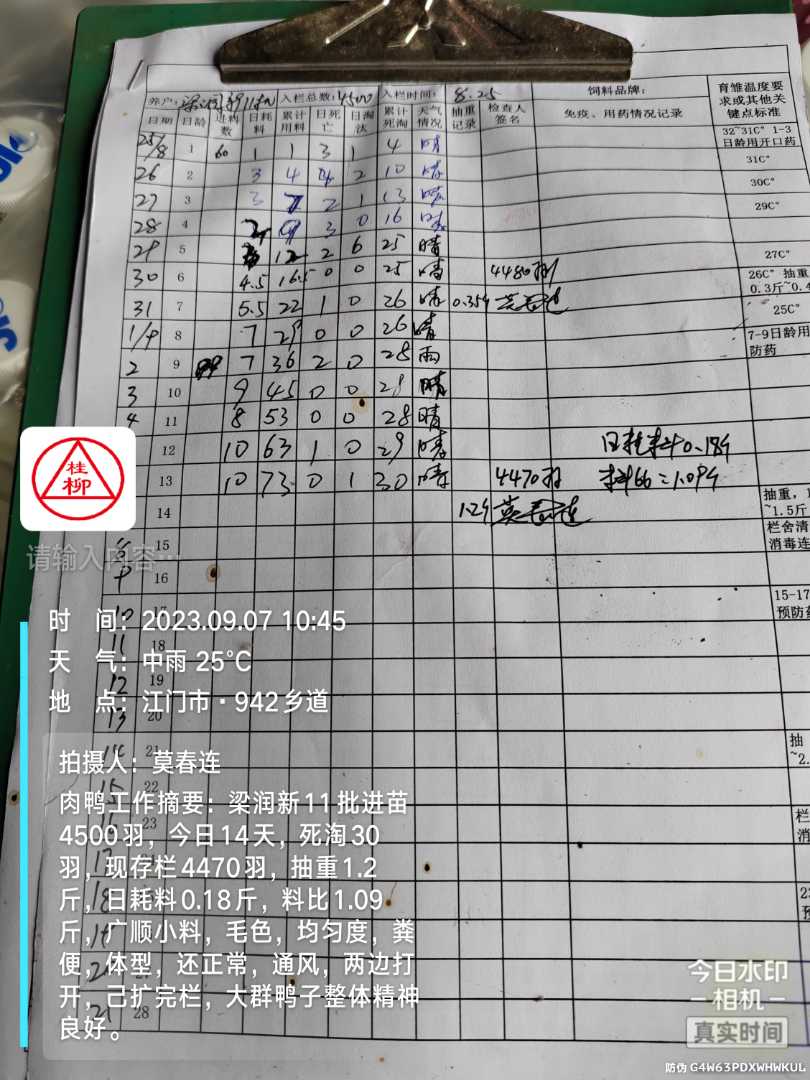 养户: 梁润新11批 入栏总数: 4500 入栏时间: 8.25 饲料品牌: 育雏温度要求或其他关键点标准
日期 日龄 进料数 日耗料 累计用料 日死亡 日淘汰 累计死淘 天气情况 抽重记录 检查人签名 免疫、用药情况记录
25/8 1 60 1 1 3 1 4 晴 32~31C° 1-3日龄用开口药
26 2 3 4 4 2 10 晴 31C°
27 3 3 7 2 1 13 晴 30C°
28 4 2 9 3 0 16 晴 29C°
29 5 3 12 2 6 25 晴 27C°
30 6 4.5 16.5 0 0 25 晴 4480羽 26C° 抽重
0.3斤~0.4
31 7 5.5 22 1 0 26 晴 0.35斤 莫春连 25C°
1/9 8 7 29 0 0 26 晴 7-9日龄用
防药
2 9 7 36 2 0 28 雨
3 10 9 45 0 0 28 晴
4 11 8 53 0 0 28 晴
12 10 63 1 0 29 晴 日耗料0.18斤
13 10 73 0 1 30 晴 4470羽 料比=1.09斤
14 1.2斤 莫春连 抽重,
~1.5斤
8 15 栏舍清
消毒连
9 16
10 17 15-17
预防药
11 18
12 19
13 20
14 21 抽
~2.
15 22
23 栏
消
17
18 23
预
19
28
桂柳
请输入内容…
时 间: 2023.09.07 10:45
天 气: 中雨 25°C
地 点: 江门市·942乡道
拍摄人: 莫春连
肉鸭工作摘要: 梁润新11批进苗
4500羽, 今日14天, 死淘30
羽, 现存栏4470羽, 抽重1.2
斤, 日耗料0.18斤, 料比1.09
斤, 广顺小料, 毛色, 均匀度, 粪
便, 体型, 还正常, 通风, 两边打
开, 己扩完栏, 大群鸭子整体精神
良好。
今日水印
相机
真实时间
防伪 G4W63PDXWHWKUL